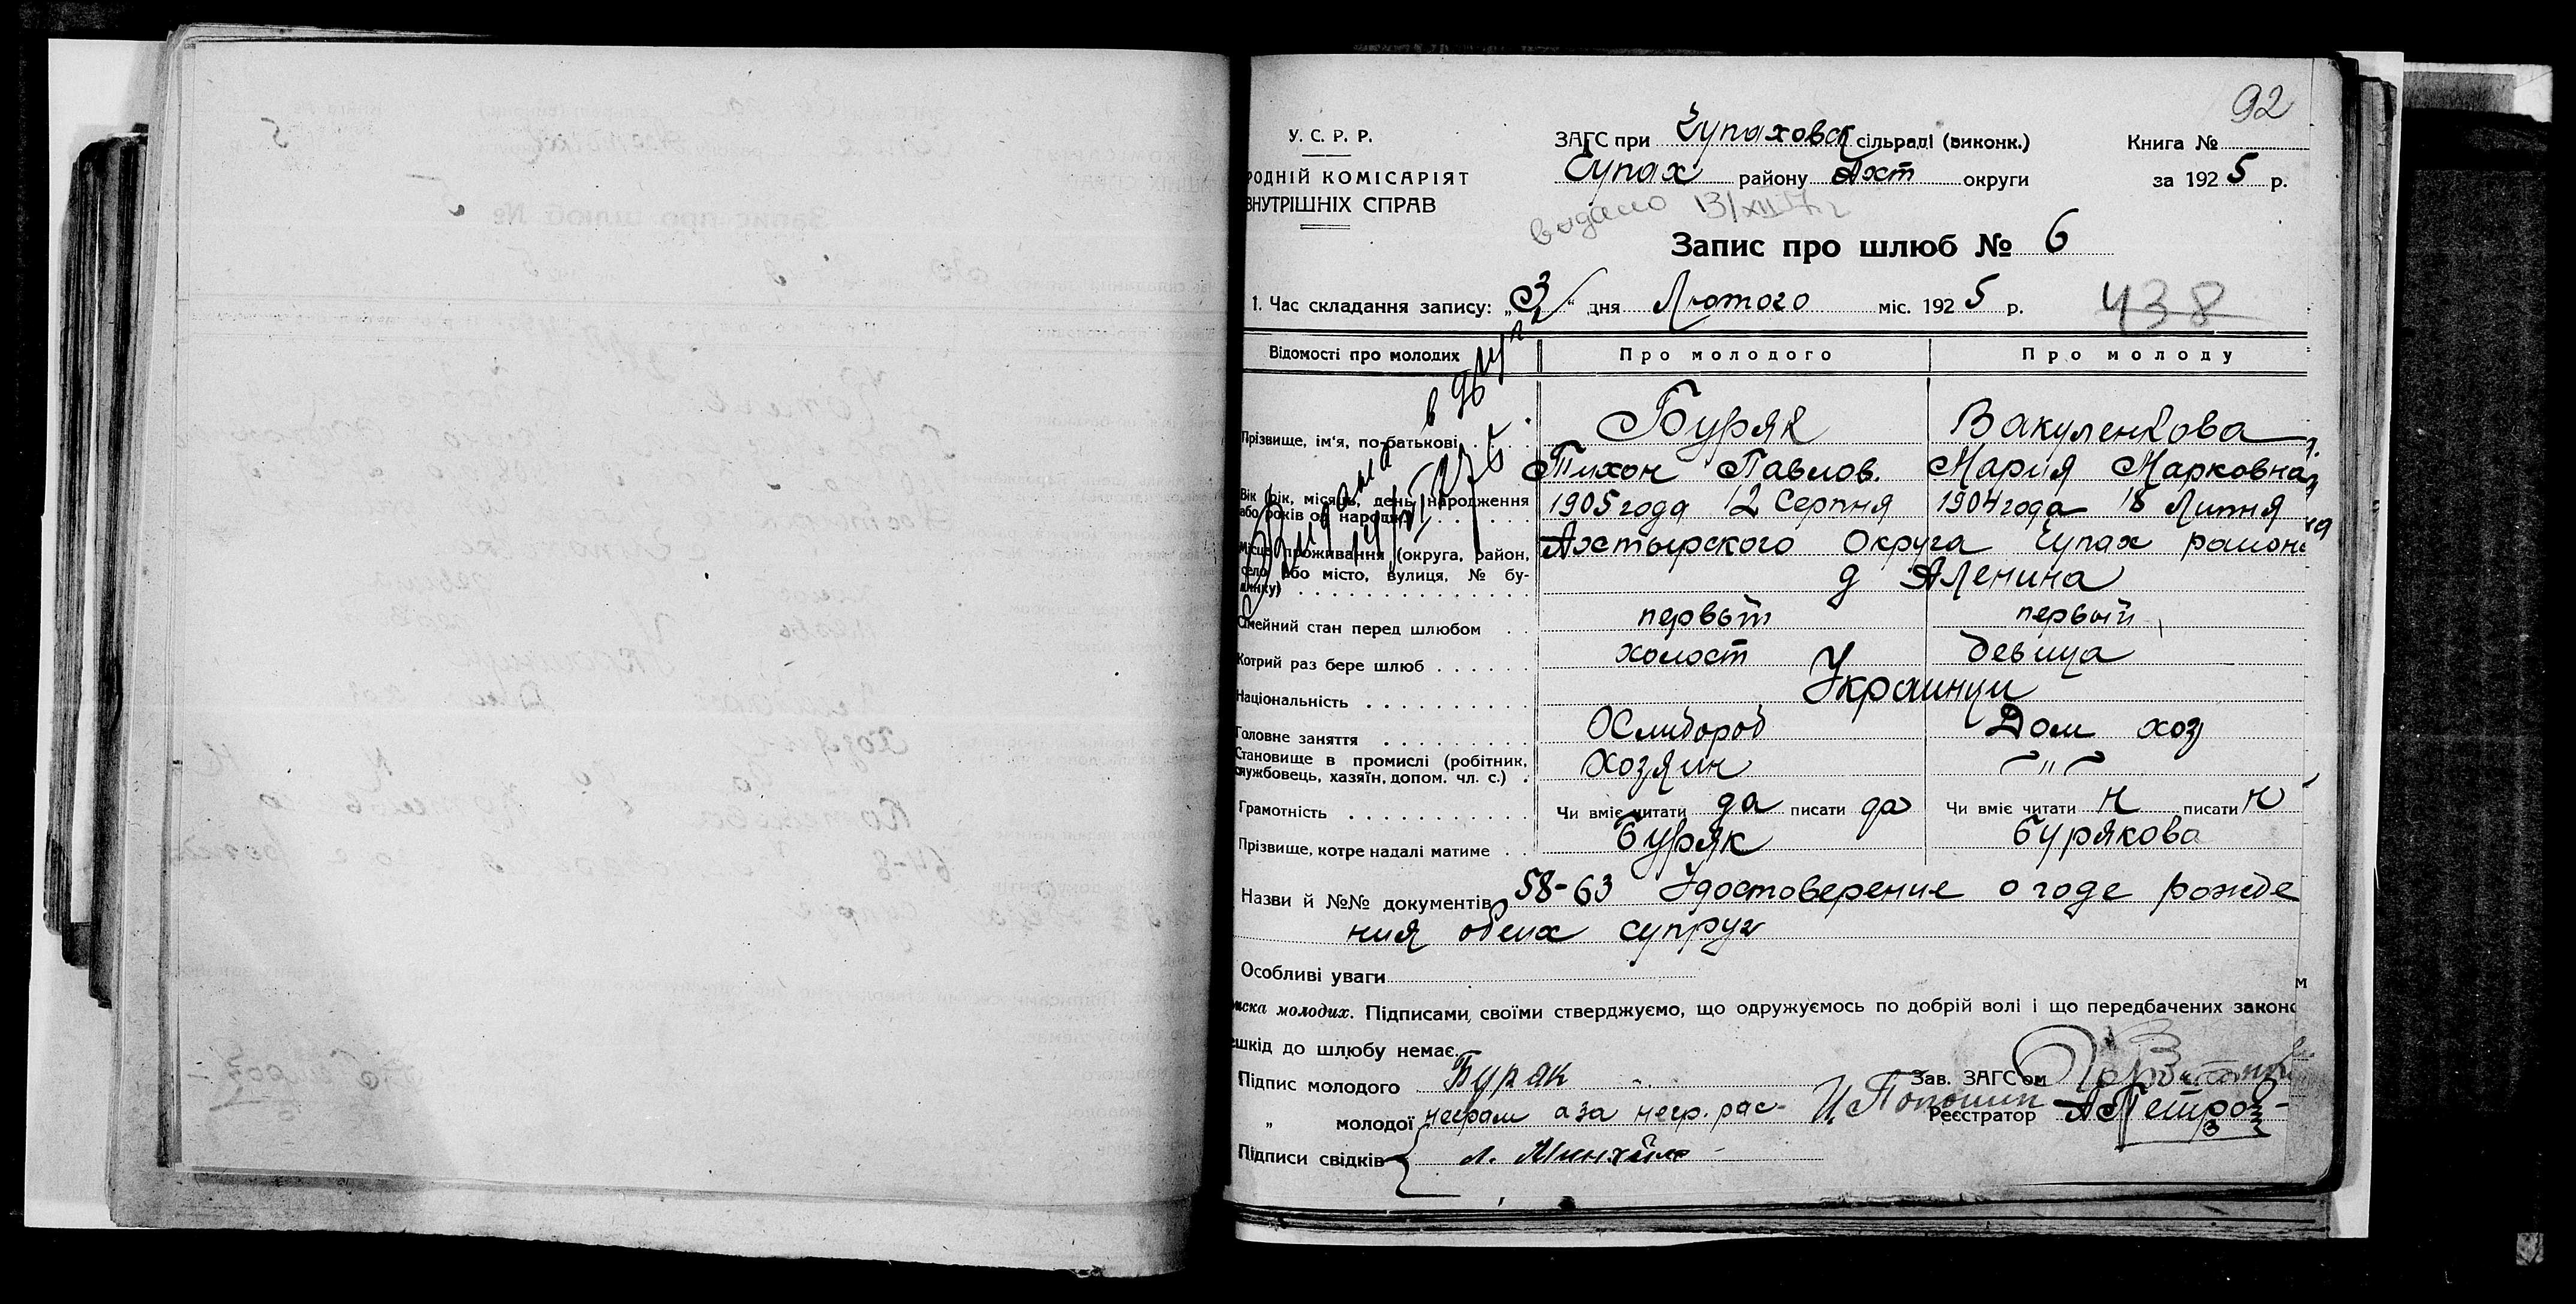 92
У. С. Р. Р.
РОДНІЙ КОМІСАРІЯТ
ВНУТРІШНІХ СПРАВ
ЗАГС при Чупаховск сільраді (виконк.)
Чупах району Ахт округи
Книга №
за 1925 р.
видано 13/XII
Запис про шлюб № 6
1. Час складання запису: „3“ дня Лютого міс. 1925 р.
438
Відомості про молодих Про молодого Про молоду
Прізвище, ім'я, по-батькові Буряк Вакуленкова
Тихон Павлов. Мария Марковна
Вік (рік, місяць, день народження або років од народж.) 1905 года 12 Серпня 1904 года 18 Липня
Місце проживання (округа, район, село або місто, вулиця, № будинку) Ахтырского Округа Чупах район
д Аленина
Сімейний стан перед шлюбом первый первый
Котрий раз бере шлюб холост девица
Національність Украинци
Головне заняття Дом хоз
Становище в промислі (робітник, службовець, хазяїн, допом. чл. с.) Хозяин — „ —
Грамотність Чи вміє читати да писати да Чи вміє читати н писати н
Прізвище, котре надалі матиме Буряк Бурякова
Назви й №№ документів 58-63 Удостоверение о годе рожде
ния обеих супруг
Особливі уваги
иска молодих. Підписами своїми стверджуємо, що одружуємось по добрій волі і що передбачених законо
м
ешкід до шлюбу немає.
Підпис молодого Буряк Зав. ЗАГС'ом
„ молодої неграм а за негр. рас- Реєстратор АПетроз-
Підписи свідків